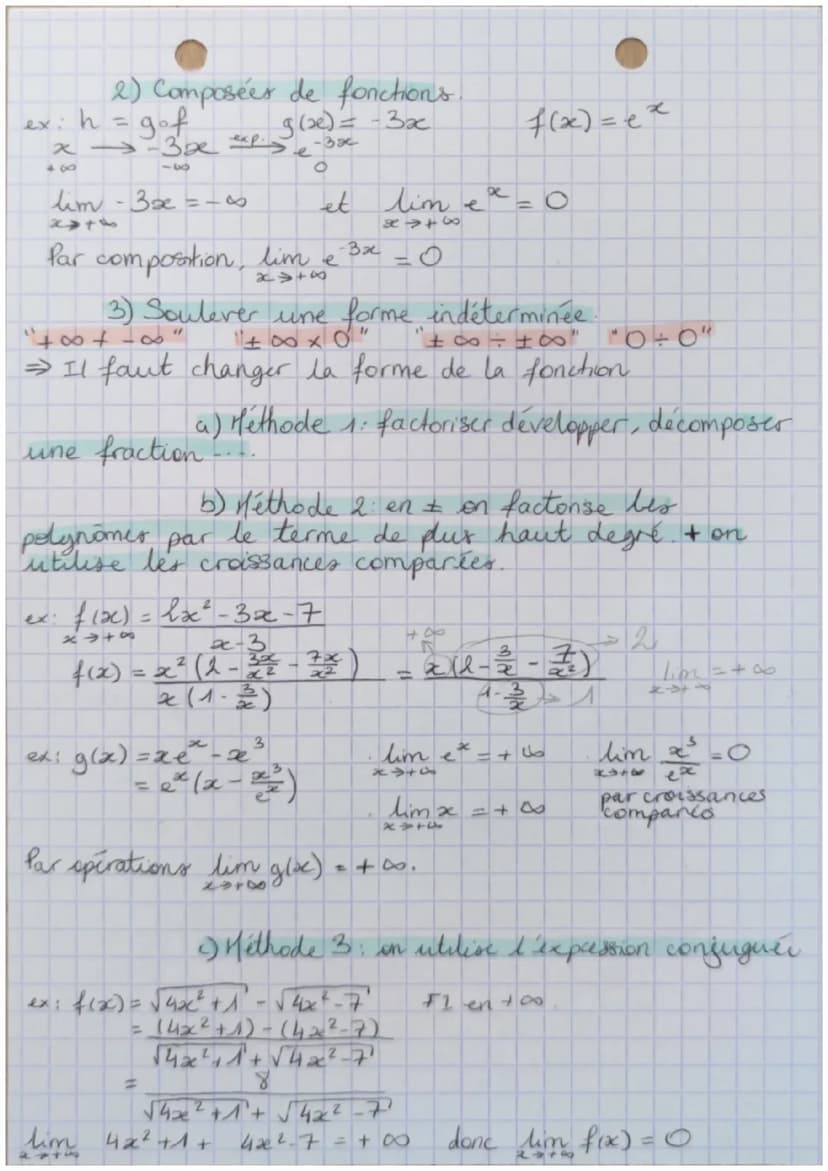 2) Composées de fonctions.
ex: h = g∘f g(x) = -3x f(x) = e^x
x → -3x exp.→ e^-3x
+∞ -∞ 0
lim -3x = -∞ et lim e^x = 0
x→+∞ x→+∞
Par composition, lim e^-3x = 0
x→+∞
3) Soulever une forme indéterminée.
"+∞ + -∞" "±∞ × 0" "±∞ ÷ ±∞" "0 ÷ 0"
⇒ Il faut changer la forme de la fonction
a) Méthode 1: factoriser développer, décomposer
une fraction ....
b) Méthode 2: en ± on factorise les
polynômes par le terme de plus haut degré. + on
utilise les croissances comparées.
ex: f(x) = 2x² - 3x - 7
x→+∞ x-3
f(x) = x²(2 - 3x/x² - 7x/x²) / x(1 - 3/x) = x(2 - 3/x - 7/x²) / 1 - 3/x +∞ → 2 → 1 lim = +∞
ex: g(x) = xe^x - x³ . lim e^x = +∞ . lim x³/e^x = 0
x→+∞ x→+∞
= e^x(x - x³/e^x) . lim x = +∞ par croissances
x→+∞ comparées
Par opérations lim g(x) = +∞.
x→+∞
c) Méthode 3: on utilise l'expression conjuguée
ex: f(x) = √4x²+1 - √4x²-7 FI en +∞.
= (4x²+1) - (4x²-7)
√4x²+1 + √4x²-7
= 8
√4x²+1 + √4x²-7
lim 4x²+1 + 4x²-7 = +∞ donc lim f(x) = 0
x→+∞ x→+∞